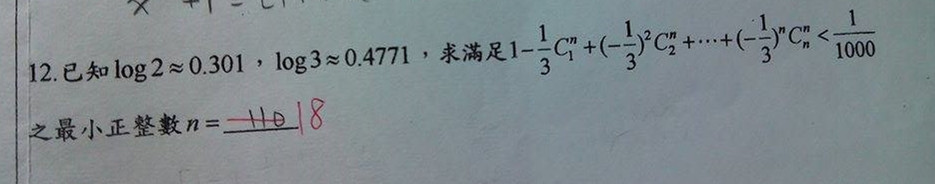 12.已知log2≈0.301，log3≈0.4771，求滿足1-\frac{1}{3}C_1^n+(-\frac{1}{3})^2C_2^n+⋯+(-\frac{1}{3})^nC_n^n<\frac{1}{1000}
之最小正整數n=110 18